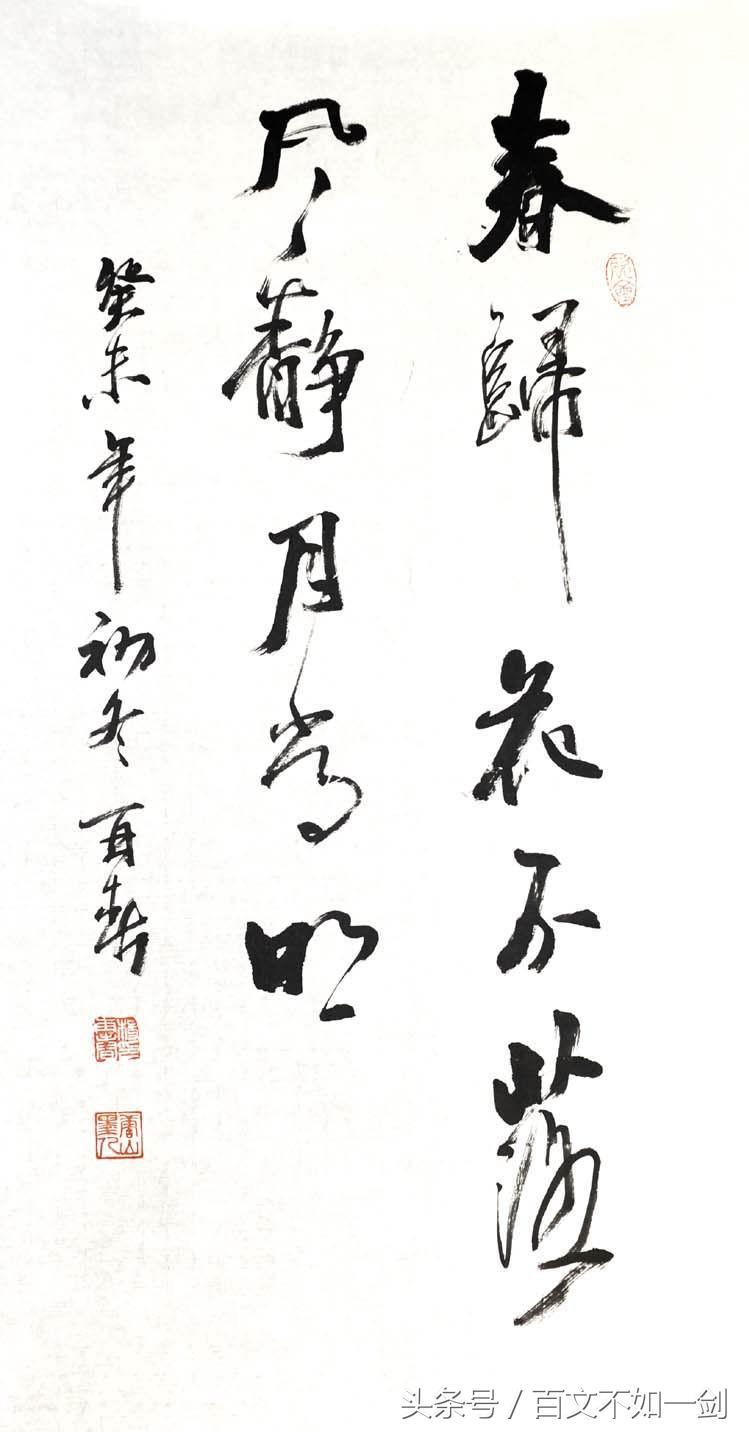 春歸花不落
风靜月常明
癸未年初冬
头条号 / 百文不如一剑